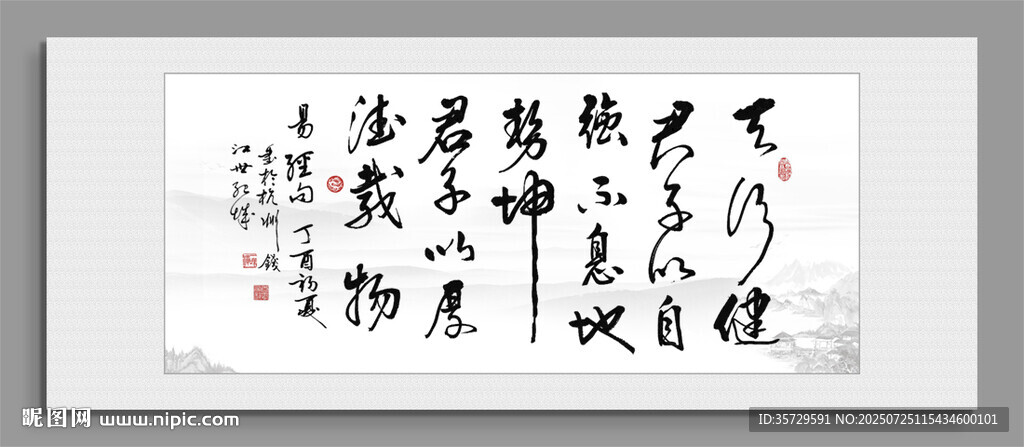 天行健
君子以自
強不息地
勢坤
君子以厚
德載物
易經句 丁酉初夏
書於杭州錢
江世紀城
昵图网 www.nipic.com
ID:35729591 NO:20250725115434600101